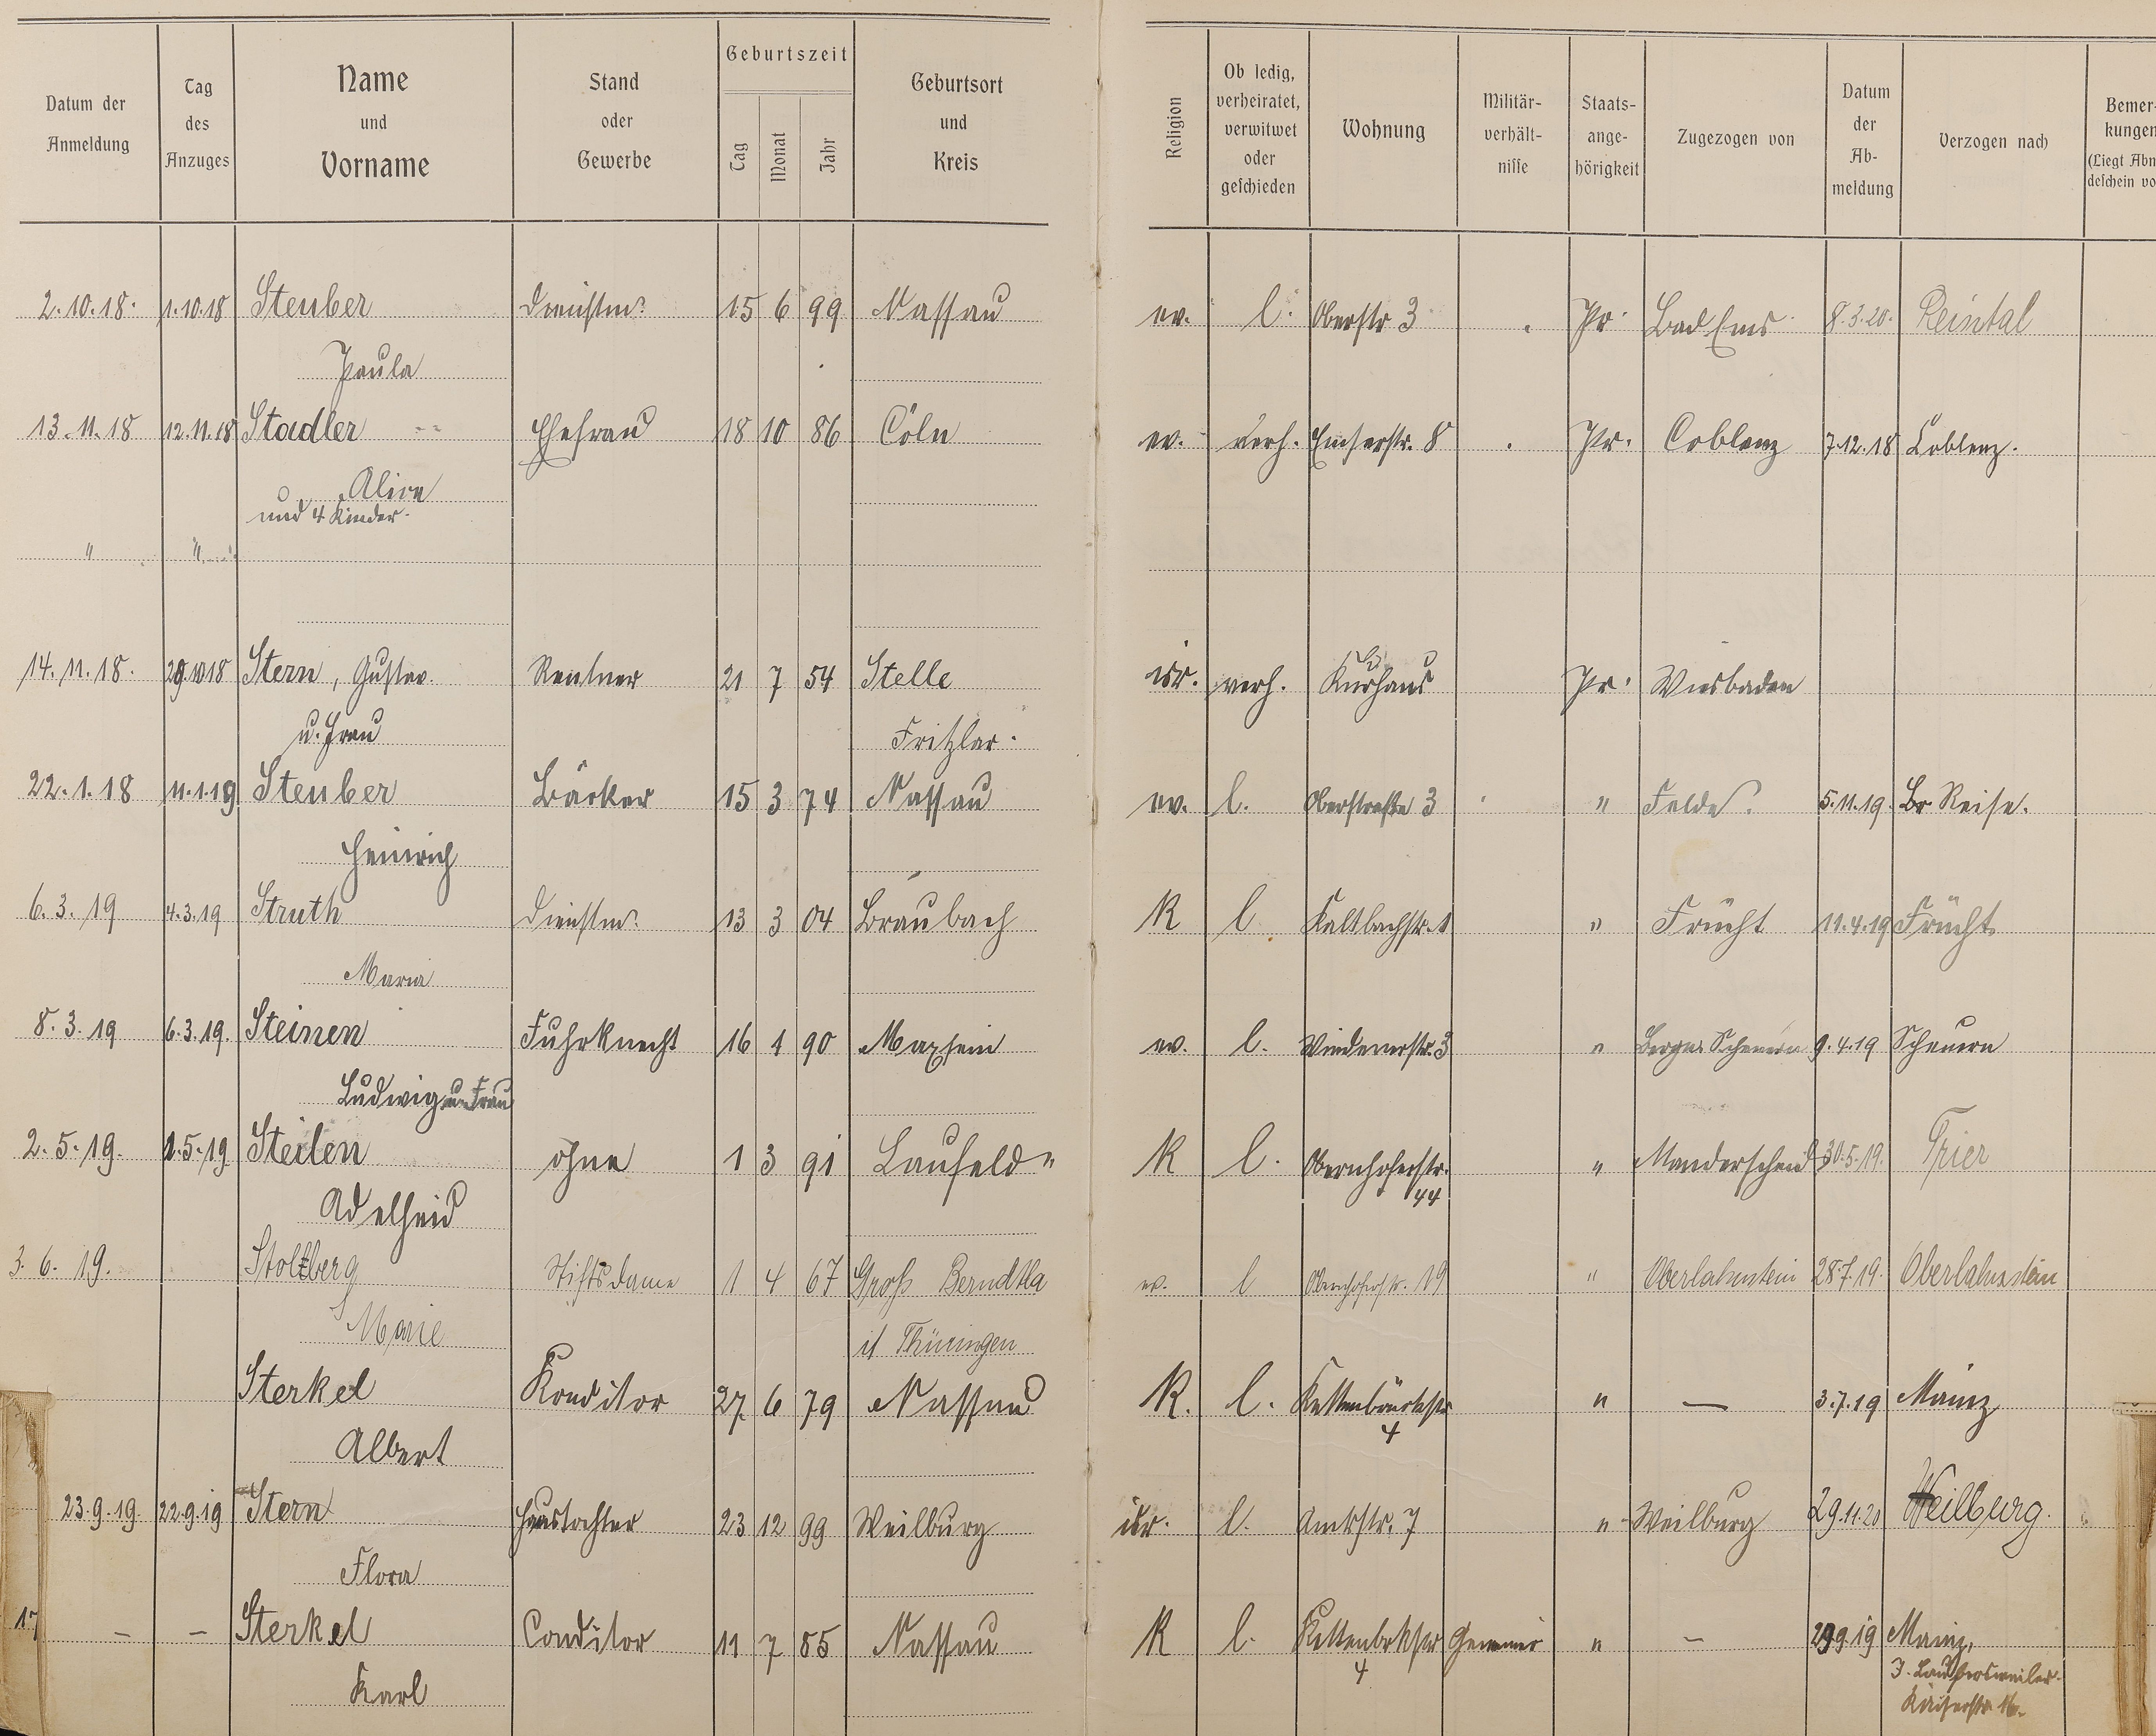 Datum der Anmeldung | Tag des Anzuges | Name und Vorname | Stand oder Gewerbe | Geburtszeit Tag Monat Jahr | Geburtsort und Kreis | Religion | Ob ledig, verheiratet, verwitwet oder geschieden | Wohnung | Militär-verhält-nisse | Staats-ange-hörigkeit | Zugezogen von | Datum der Ab-meldung | Verzogen nach | Bemer-kungen (Liegt Abm deschein vo
2.10.18. 1.10.18 Steuber Dienstm. 15 6 99 Nassau ev. l. Oberstr 3 Pr. Bad Ems 8.3.20.
Paula
13.11.18 12.11.18 Stadler Ehefrau 18 10 86 Cöln ev. verh. Emserstr. 8 Pr. Coblenz 7.12.18 Coblenz.
Alice
und 4 Kinder.
" "
14.11.18. 18 Stern, Gustav. Rentner 21 7 54 Stelle isr. verh. Kurhaus Pr. Wiesbaden
u. Frau Fritzlar.
22.1.18 11.1.19 Steuber Bäcker 15 3 74 Nassau ev. l. Oberstraße 3 " Felde. 5.11.19. Reise.
Heinrich
6.3.19 4.3.19 Struth Dienstm. 13 3 04 Braubach K l Kaltbachstr. 1 " Frücht 11.4.19 Frücht
Maria
8.3.19 6.3.19. Steinen Fuhrknecht 16 1 90 Maxsein ev. l. Windenerstr. 3 " Bergn. Scheuern 9.4.19 Scheuern
Ludwig u. Frau
2.5.19. 1.5.19 Steilen ohne 1 3 91 Laufeld " K l. Obernhoferstr. " Manderscheid 30.5.19. Trier
44
Adelheid
3.6.19. Stoltzberg Stiftsdame 1 4 67 Groß Berndtla ev. l Obernhoferstr. 19 " Oberlahnstein 28.7.19. Oberlahnstein
Marie Thüringen
Sterkel Konditor 27 6 79 Nassau K. l. Kettenbrückstr " — 3.7.19 Mainz
4
Albert
23.9.19. 22.9.19 Stern Haustochter 23 12 99 Weilburg isr. l. Amtstr. 7 " Weilburg 29.11.20 Weilburg.
Flora
17 – – Sterkel Conditor 11 7 85 Nassau K l. Kettenbrkstr " – 29.9.19 Mainz,
4
Karl Kaiserstr. 16.